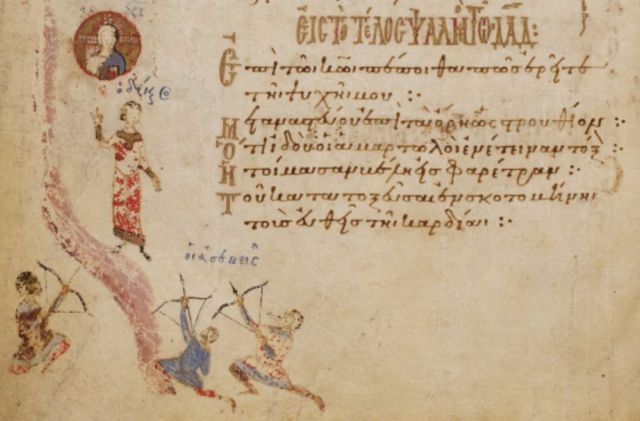 ΕΙΣ ΤΟ ΤΕΛΟΣ ΨΑΛΜ ΤΩ ΔΑΔ:
Ἐπὶ τῶ κω πέποιθα πῶς ἐρεῖτε
τῆ ψυχῆ μου :·
Μεταναστεύου ἐπὶ τὰ ὄρη ὡς στρουθίον :
Ὅτι ἰδοὺ οἱ ἁμαρτωλοὶ ἐνέτειναν τόξ
Ἡτοίμασαν βέλη εἰς φαρέτραν :
Τοῦ κατατοξεῦσαι ἐν σκοτομήνη
τοὺς εὐθεῖς τῆ καρδία :·
οἱ ἀσεβεῖς